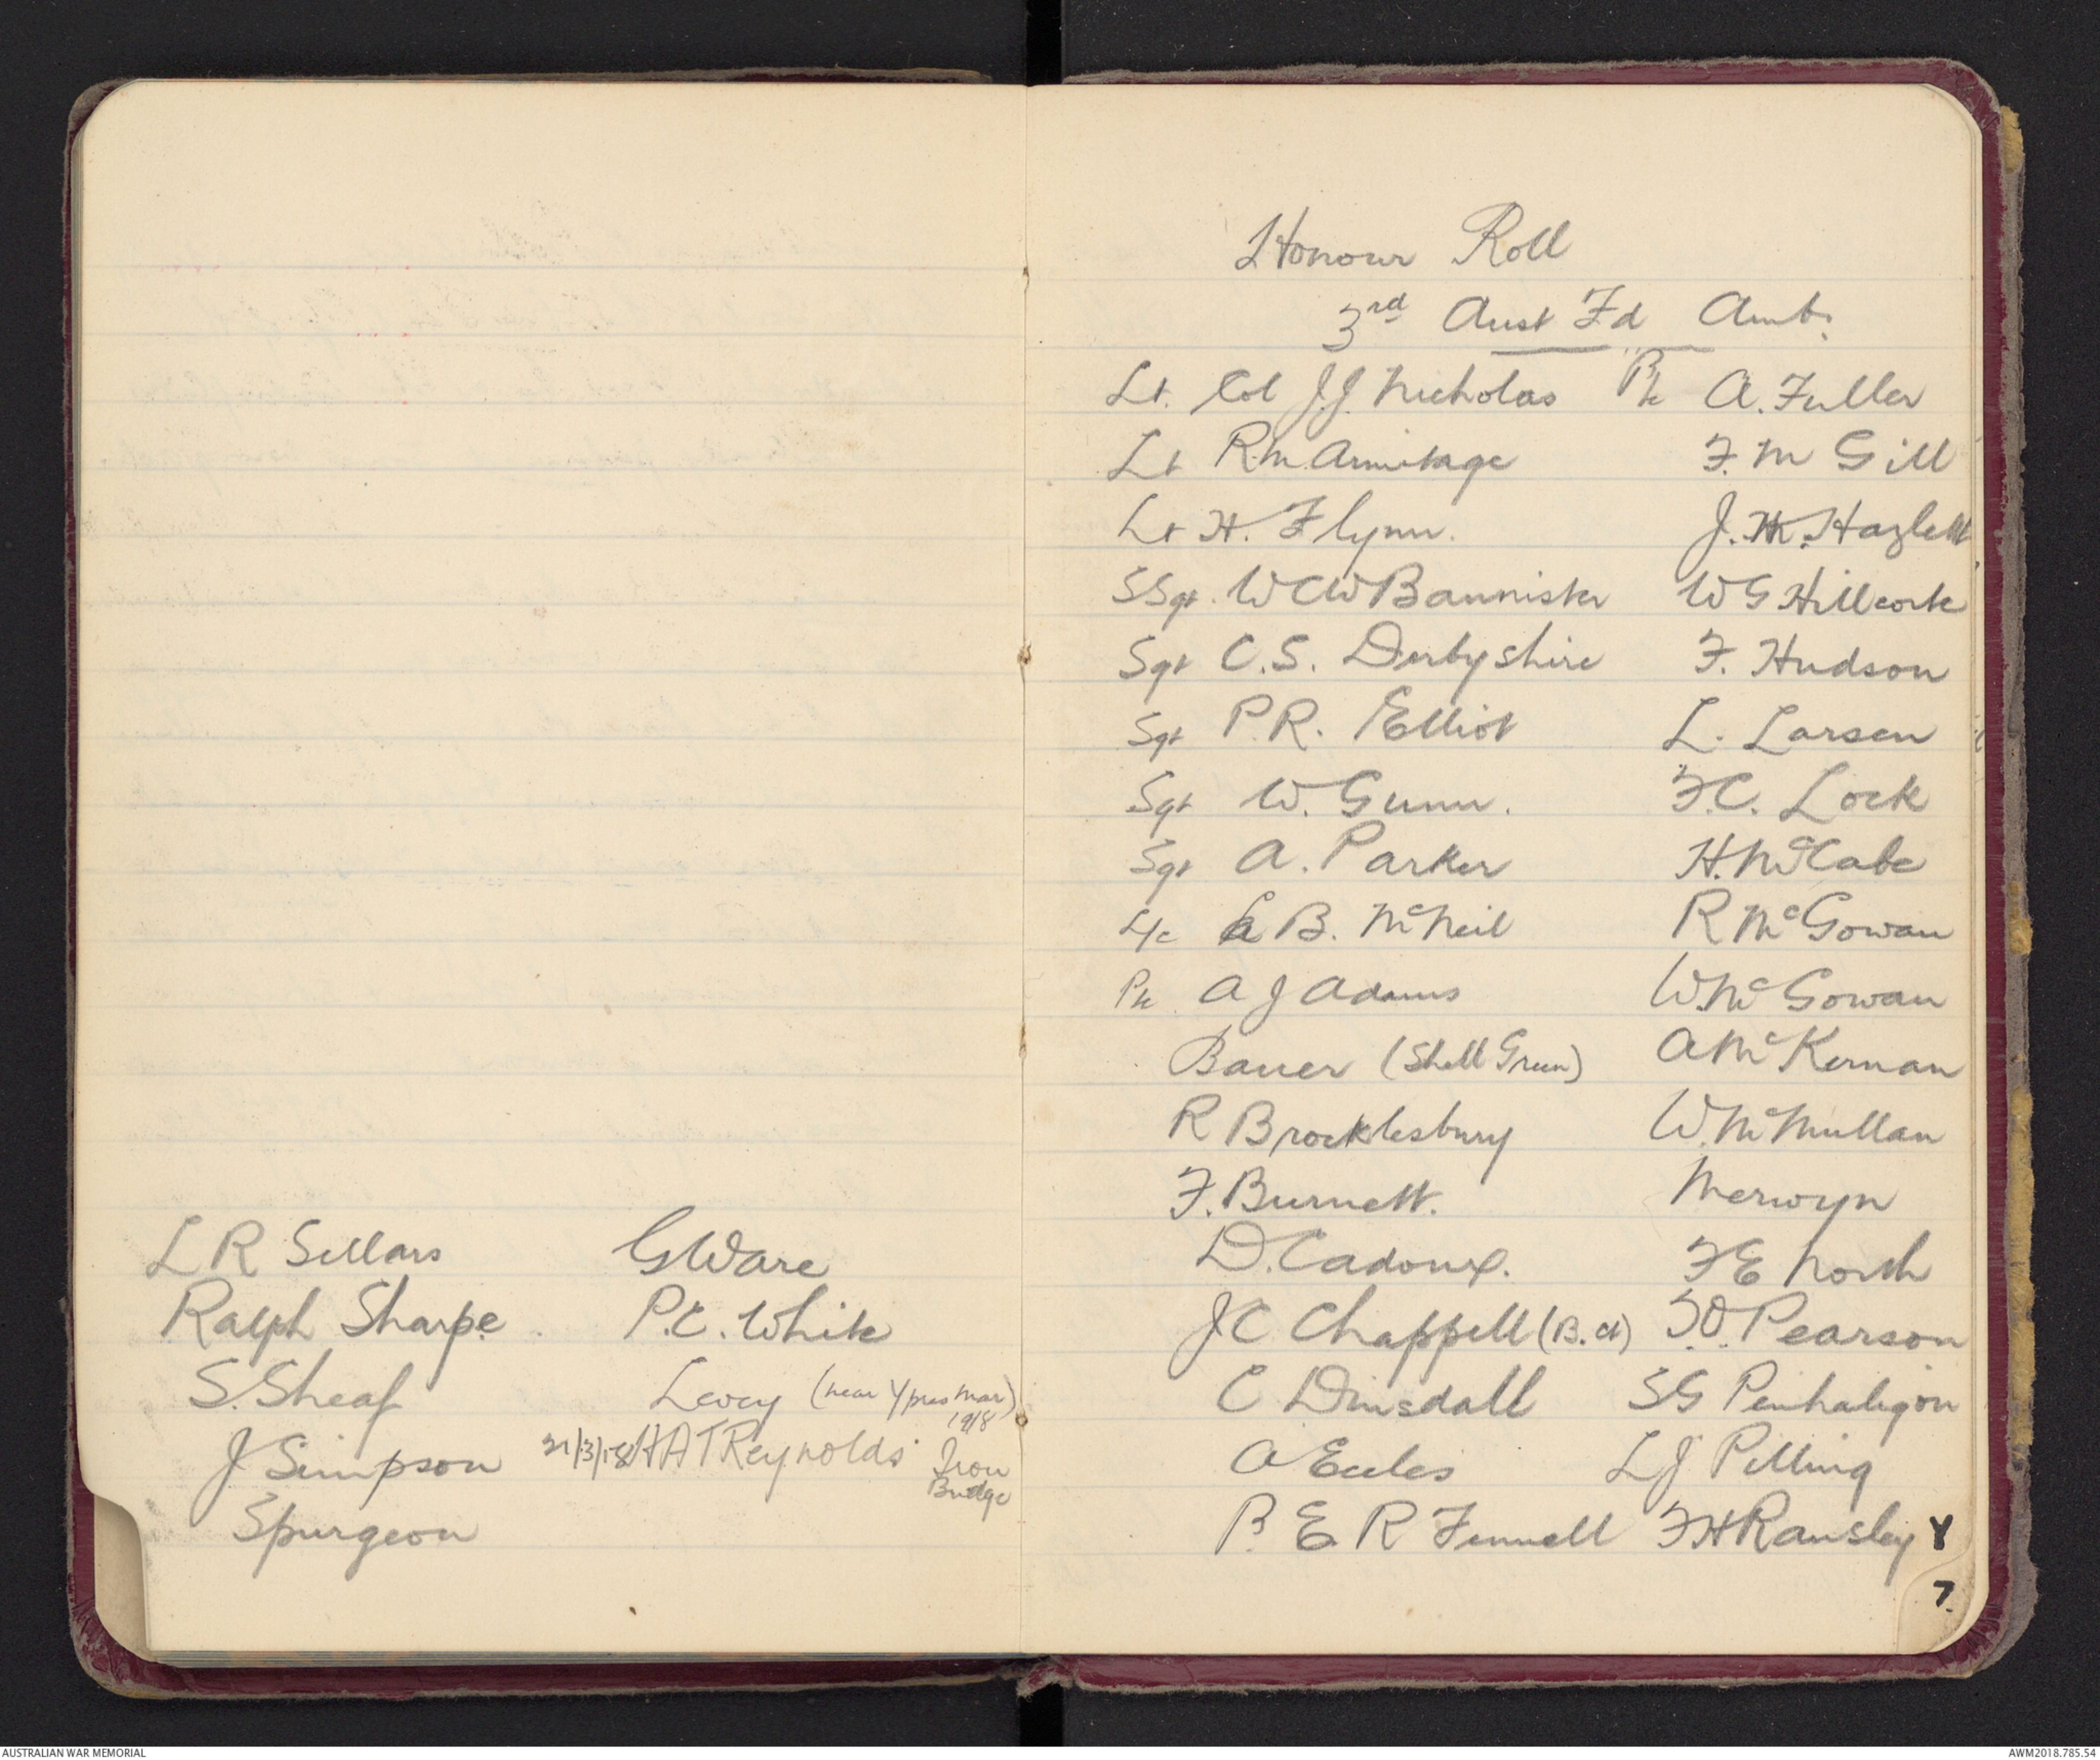 L R Sellars G Ware
Ralph Sharpe P.C. White
S. Sheaf Levey (near Ypres Mar) 1918
J Simpson 21/3/18 H A T Reynolds Iron Bridge
Spurgeon
Honour Roll
3rd Aust Fd Amb.
Lt. Col J.J. Nicholas Pte A. Fuller
Lt R.M. Armitage F. M Gill
Lt H. Flynn. J. Hazlett
SSgt. W C W Bannister W G Hillcoat
Sgt C.S. Derbyshire F. Hudson
Sgt P.R. Elliot L. Larsen
Sgt W. Gunn. F.C. Lock
Sgt A. Parker H. McCabe
L/c B. McNeil R McGowan
Pte A J Adams W. McGowan
Bauer (Shell Green) A McKernan
R Brocklesbury W. McMullan
F. Burnett. Merwyn
D. Cadoux. F E North
J C Chappell (B. Pearson
C Dinsdall S G Penhaligon
A Eccles L J Pilling
P. E R Fennell F H Ransley
7.
AUSTRALIAN WAR MEMORIAL
AWM2018.785.54